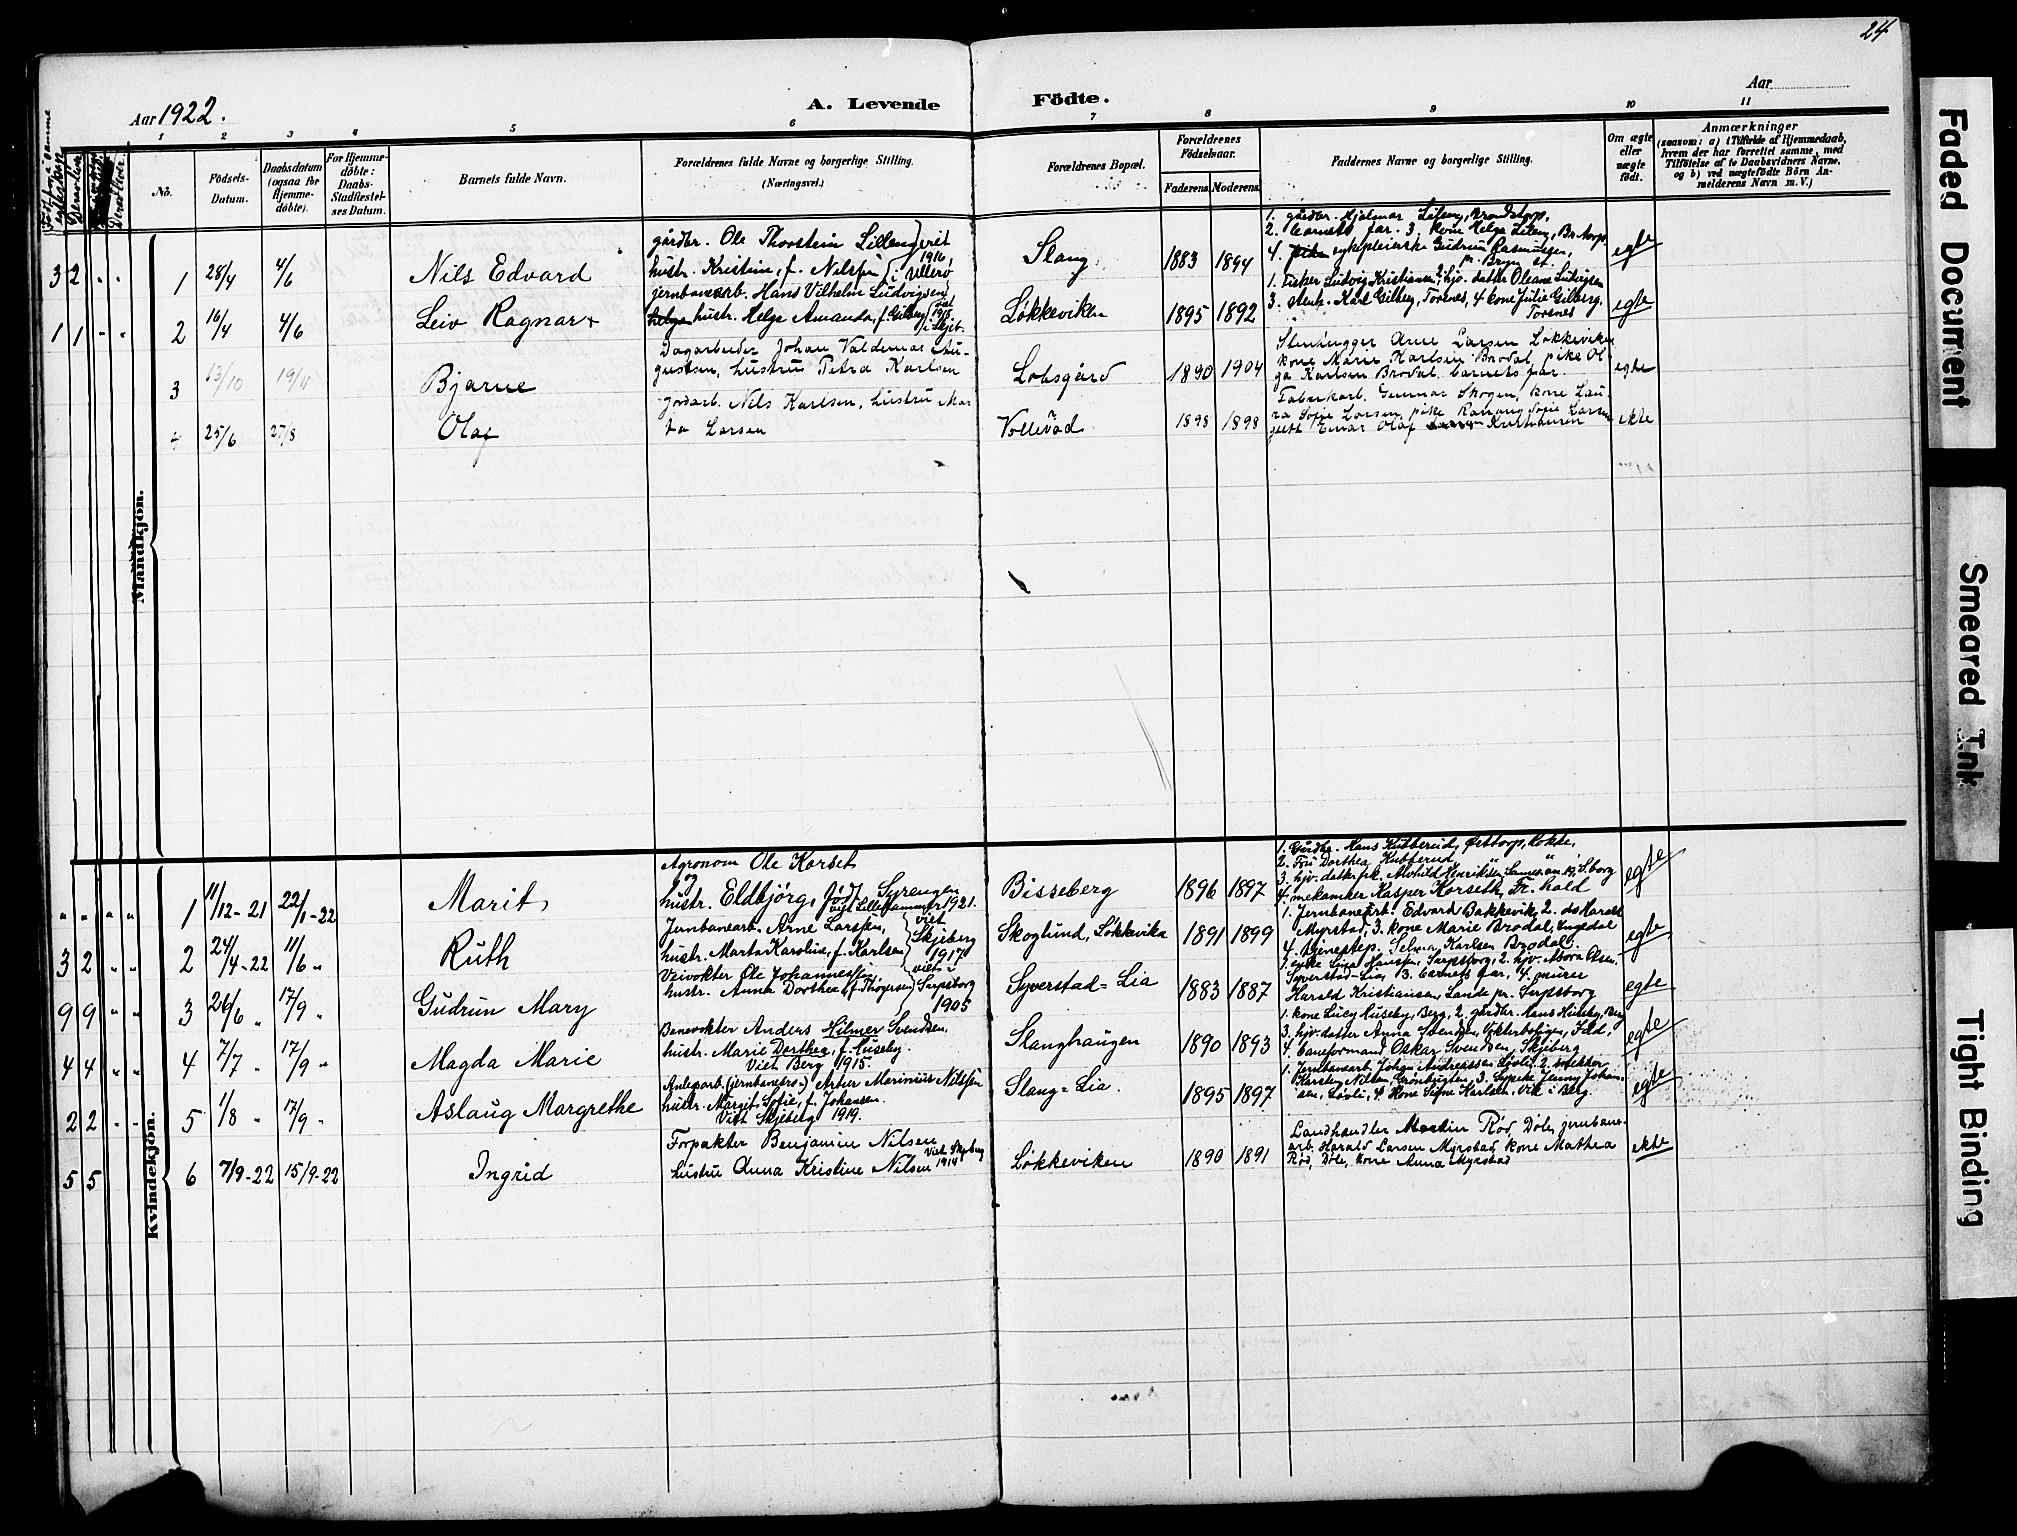 24
Aar 1922.
A. Levende Födte.
Aar
1 2 3 4 5 6 7 8 9 10 11
Født i samme egteskap
Derav levende
Derav lever
No.
Födsels-Datum.
Daabsdatum (ogsaa for Hjemme-döbte).
For Hjemme-döbte: Daabs-Stadfæstelses Datum.
Barnets fulde Navn.
Forældrenes fulde Navne og borgerlige Stilling. (Næringsvei.)
Forældrenes Bopæl.
Forældrenes Födselsaar.
Faderens Moderens.
Faddernes Navne og borgerlige Stilling.
Om ægte eller uægte födt.
Anmærkninger
(saasom: a) i Tilfælde af Hjemmedaab, hvem der har forrettet samme, med Tilföielse af to Daabsvidners Navne, og b) ved uægtefödte Börn Anmelderens Navn m. V.)
Mandkjön.
3 2 " " 1 28/4 4/6 Nils Edvard
gårdbr. Ole Thorstein Lilleng
hustr. Kristine, f. Nilssen
viet 1916, i Ullerö
Slang 1883 1894
1. gårdbr. Hjalmar Lileng, Brandstorp,
2. barnets far. 3. kone Helga Lileng, Br. torp,
4. sykepleierske Gudrun Rasmussen,
pr. Bryn st.
egte
1 1 - " 2 16/4 4/6 Leiv Ragnar +
jernbanearb. Hans Vilhelm Ludvigsen
hustr. Helga Amanda, f. Gilberg
viet 1915 i Skjeb.
Løkkeviken 1895 1892
1. Fisker Ludvig Kristiansen, 2. hjv. datter Oleane Ludvigsen
3. stenh. Karl Gilberg, Torsnes, 4. kone Julie Gilberg,
Torsnes
egte
3 13/10 19/4 Bjarne
Dagarbeider Johan Valdemar Au-
gustsen, hustru Petra Karlsen
Lobsgård 1890 1904
Stenhugger Arne Larsen Løkkeviken
kone Marie Karlsen Brodal, pike Ol-
ga Karlsen Brodal, barnets far.
egte
4 25/6 27/8 Olaf
Jordarb. Nils Karlsen, hustru Mar
ta Larsen
Vollevåd 1898 1898
Fabrikarb. Gunnar Skogen, kone Lau-
ra Sofie Larsen, pike Sofie Larsen
Einar Olaf Kristiansen
ekte
Kvindekjön.
" " " " 1 11/12-21 22/1-22 Marit
Agronom Ole Korset
og
hustr. Eldbjörg, född Syrengen
viet Lillehammer 1921.
Bisseberg 1896 1897
1. Gårdbr. Hans Kutterud, Østtorp, Rokke,
2. Fru Dorthea Kutterud " "
4. mekaniker Kasper Korseth, Fr. hald
egte
3 2 " " 2 24/4-22 11/6 " Ruth
Jernbanearb. Arne Larsen,
hustr. Marta Karoline, f. Karlsen
viet Skjeberg 1917
Skoglund, Løkkevika 1891 1899
1. Jernbanearb. Edvard Bakkevik, 2. do Harald
Myrstad, 3. kone Marie Brodal, Ingedal
4. tjenestep. Selma Karlsen Brodal.
egte
9 9 " " 3 26/6 " 17/9 " Gudrun Mary
Veivokter Ole Johannessen,
hustr. Anna Dorthea, f. Thoresen
viet i Sarpsborg 1905
Syverstad-Lia 1883 1887
1. Lina Hansen, Sarpsborg, 2. hjv. Mora Olsen
Syverstad-Lia, 3. barnets far, 4. murer
Harald Kristiansen, Lande pr. Sarpsborg
egte
4 4 " " 4 7/7 " 17/9 " Magda Marie
Banevokter Anders Hilmer Svendsen,
hustr. Marie Dorthea, f. Huseby.
Viet Berg 1915.
Slanghaugen 1890 1893
1. kone Lucy Huseby, Berg, 2. gårdbr. Hans Huseby, Berg
3. hjv. datter Anna Svendsen, Vokterboligen, Idd,
4. baneformand Oskar Svendsen, Skjeberg
egte
2 2 " " 5 1/8 " 17/9 " Aslaug Margrethe
Anlegarb. (jernbanears.) Artur Marinius Nilssen
hustr. Margit Sofie, f. Johansen.
Viet Skjeberg 1919.
Slang-Lia 1895 1897
1. Jernbanearb. Johan Andreassen Løvli, 2.
Karsten Nilsen, Grönbugten, 3. Jenny Johan-
sen, Løvli, 4. Kone Signe Karlsen, Vik i Berg.
egte
5 5 6 7/9-22 15/9-22 Ingrid
Forpakter Benjamin Nilsen
hustru Anna Kristine Nilsen
Viet Skjeberg 1914
Løkkeviken 1890 1891
Landhandler Martin Rød, Døle, jernbane-
arb. Harald Larsen Myrstad, kone Mathea
Rød, Døle, kone Anna Myrstad
ekte
Faded Document
Smeared Ink
Tight Binding